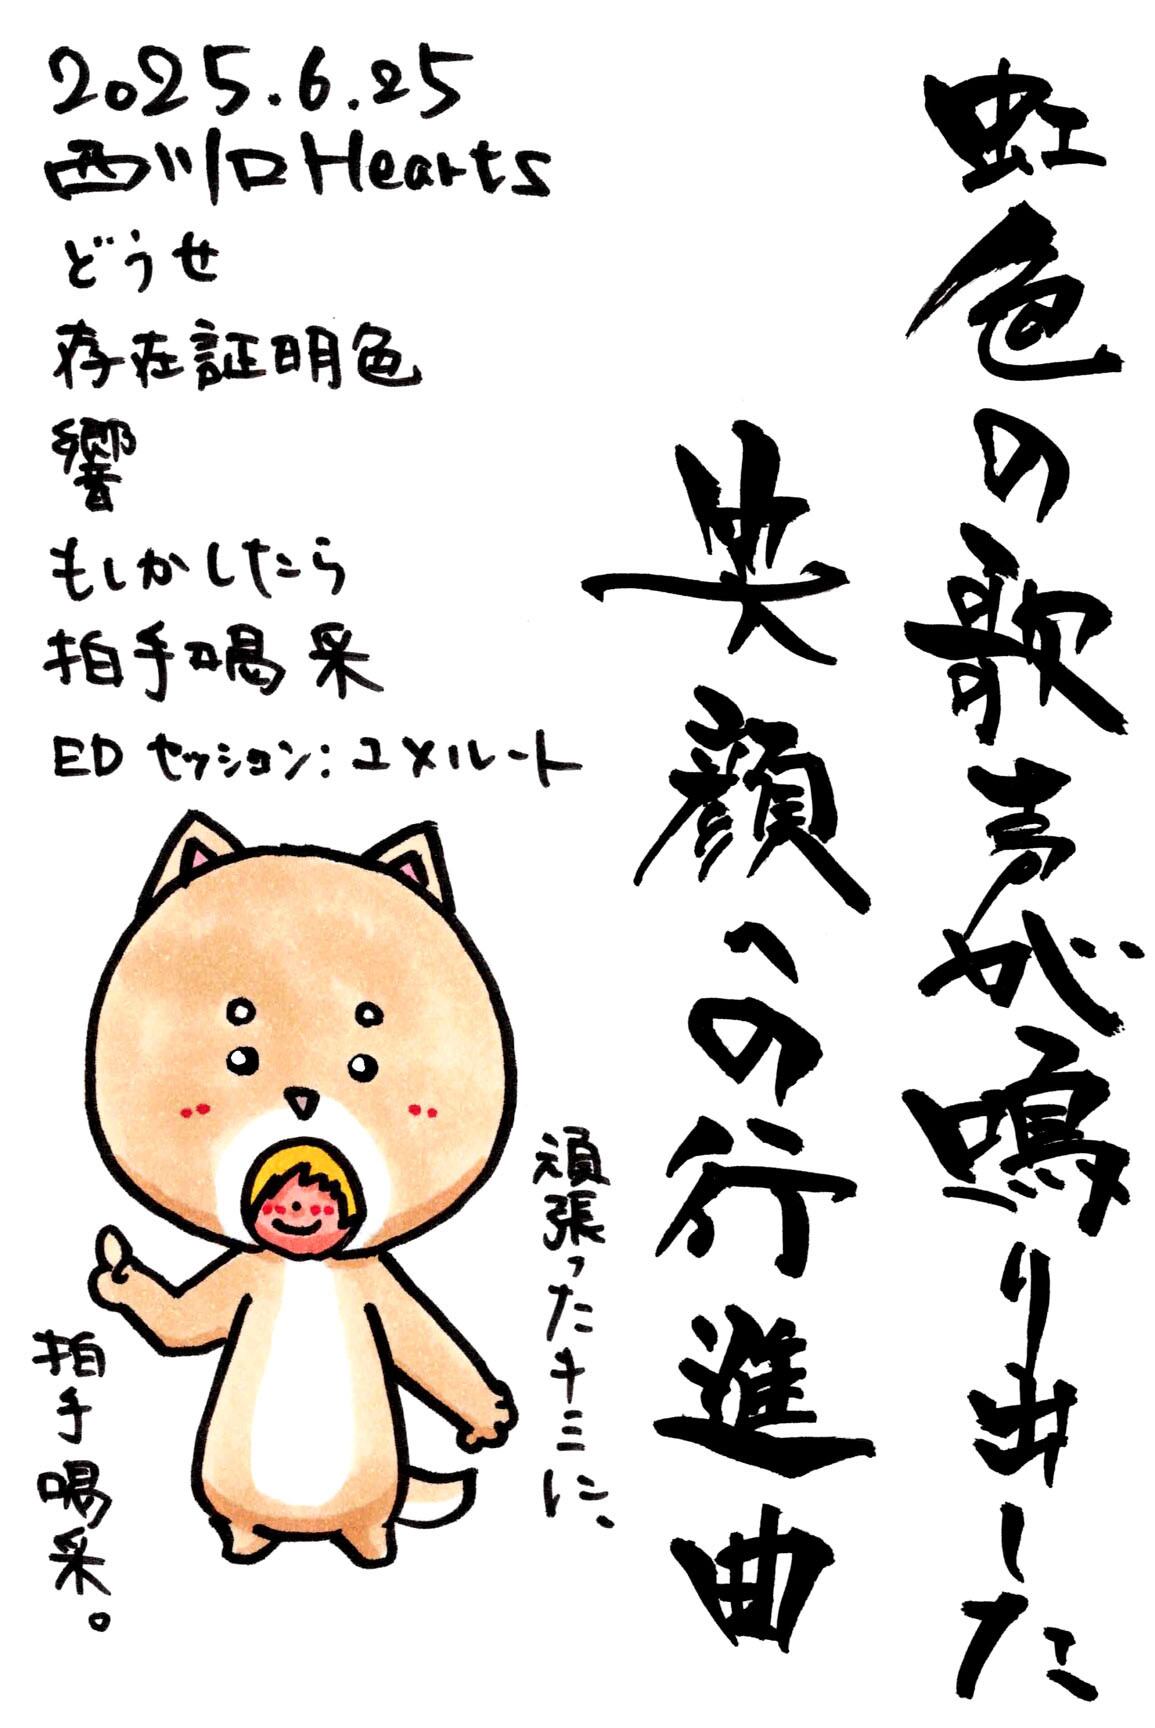 虹色の歌声が鳴り出した
笑顔への行進曲
2025.6.25
西川口Hearts
どうせ
存在証明色
響
もしかしたら
拍手喝采
EDセッション:ユメルート
頑張ったキミに、
拍手喝采。